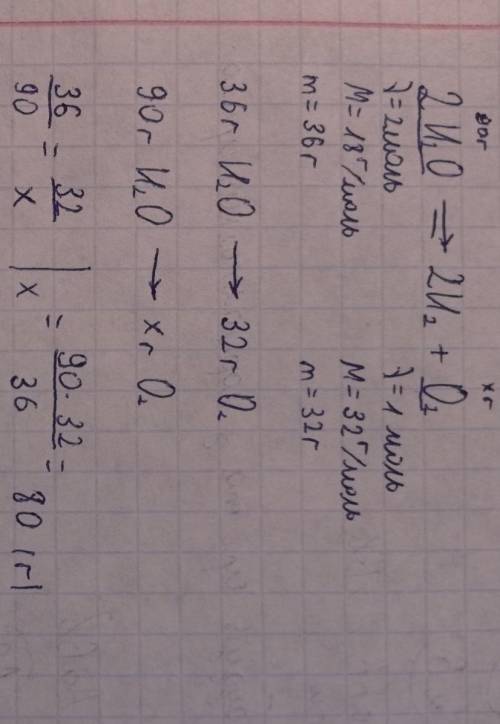 90г xг
2H₂O ⇒ 2H₂ + O₂
ν=2моль ν=1 моль
M=18г/моль M=32г/моль
m=36г m=32г
36г H₂O → 32г O₂
90г H₂O → xг O₂
36/90 = 32/x | x = 90·32/36 = 80 (г)